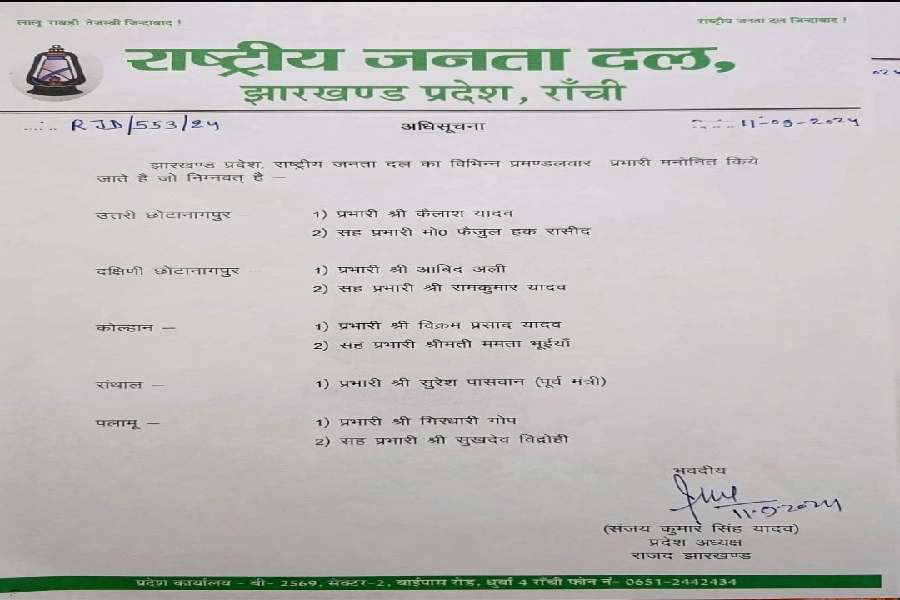 लालू राबड़ी तेजस्वी जिन्दाबाद ! राष्ट्रीय जनता दल जिन्दाबाद !
राष्ट्रीय जनता दल,
झारखण्ड प्रदेश, राँची
RJD/553/24 अधिसूचना 11-09-2024
झारखण्ड प्रदेश, राष्ट्रीय जनता दल का विभिन्न प्रमण्डलवार प्रभारी मनोनित किये
जाते है जो निम्नवत् है –
उत्तरी छोटानागपुर – 1) प्रभारी श्री कैलाश यादव
2) सह प्रभारी मो0 फैजुल हक रासीद
दक्षिणी छोटानागपुर – 1) प्रभारी श्री आबिद अली
2) सह प्रभारी श्री रामकुमार यादव
कोल्हान – 1) प्रभारी श्री विक्रम प्रसाद यादव
2) सह प्रभारी श्रीमती ममता भूईयाँ
संथाल – 1) प्रभारी श्री सुरेश पासवान (पूर्व मंत्री)
पलामू – 1) प्रभारी श्री गिरधारी गोप
2) सह प्रभारी श्री सुखदेव विद्रोही
भवदीय
11-9-2024
(संजय कुमार सिंह यादव)
प्रदेश अध्यक्ष
राजद झारखण्ड
प्रदेश कार्यालय – बी- 2569, सेक्टर-2, बाईपास रोड, धुर्वा 4 राँची फोन नं- 0651-2442434